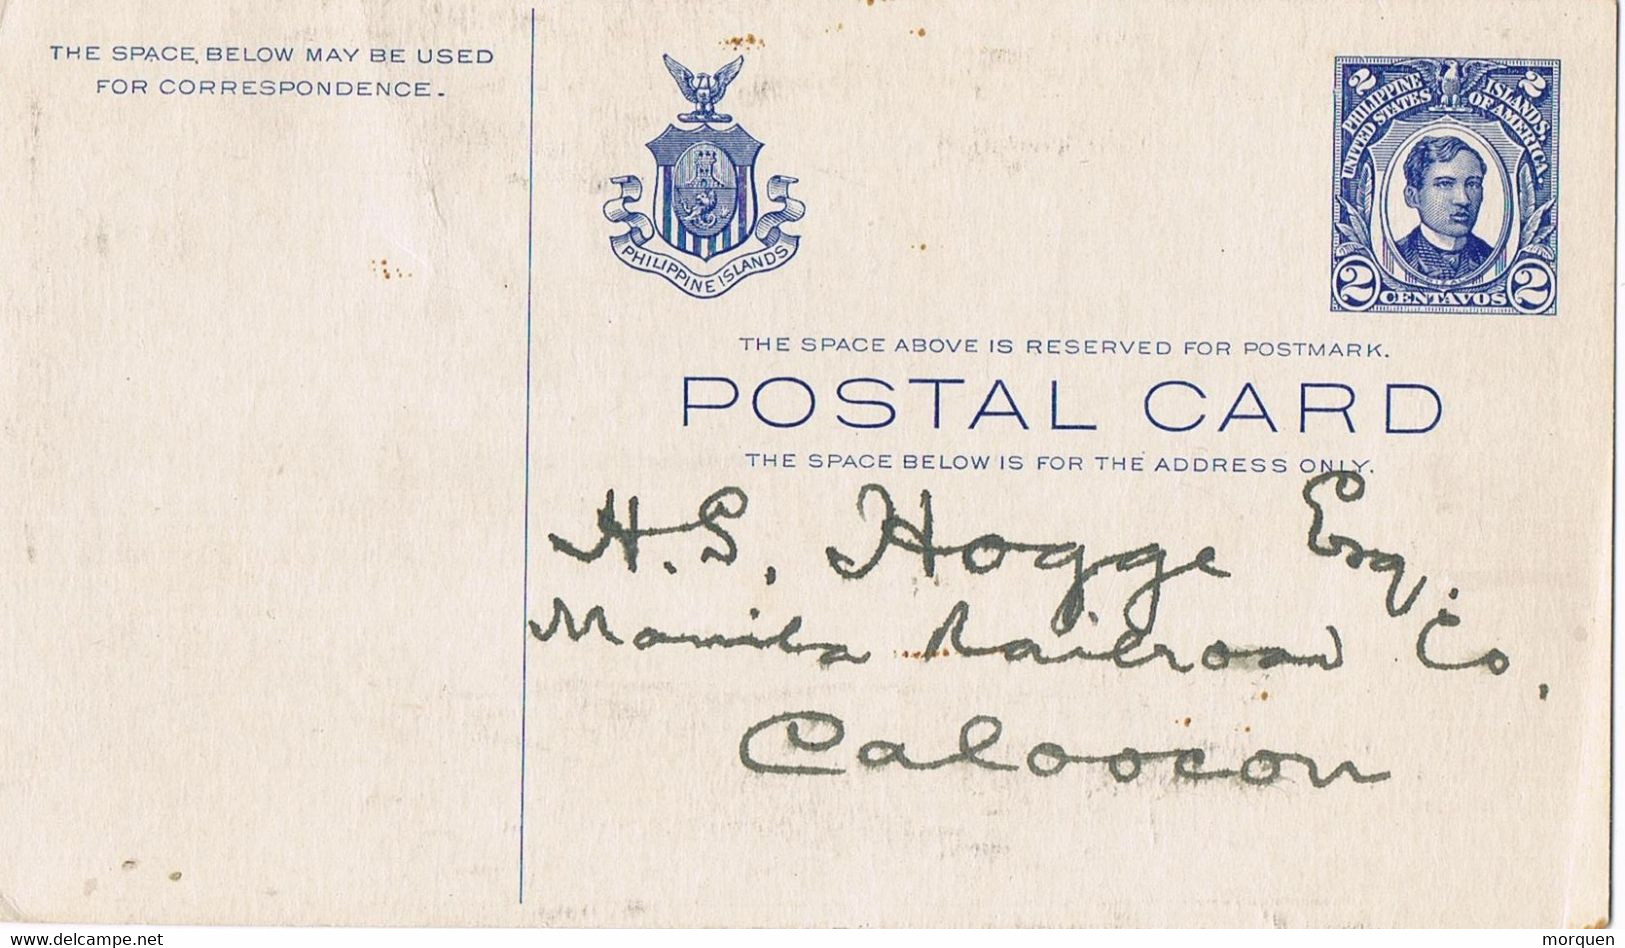 THE SPACE BELOW MAY BE USED
FOR CORRESPONDENCE.
PHILIPPINE ISLANDS
2 2
PHILIPPINE ISLANDS,
UNITED STATES OF AMERICA.
RIZAL
2 CENTAVOS 2
THE SPACE ABOVE IS RESERVED FOR POSTMARK.
POSTAL CARD
THE SPACE BELOW IS FOR THE ADDRESS ONLY.
H. S. Hogge Esq.
Manila Railroad Co.
Caloocan
www.delcampe.net
morquen